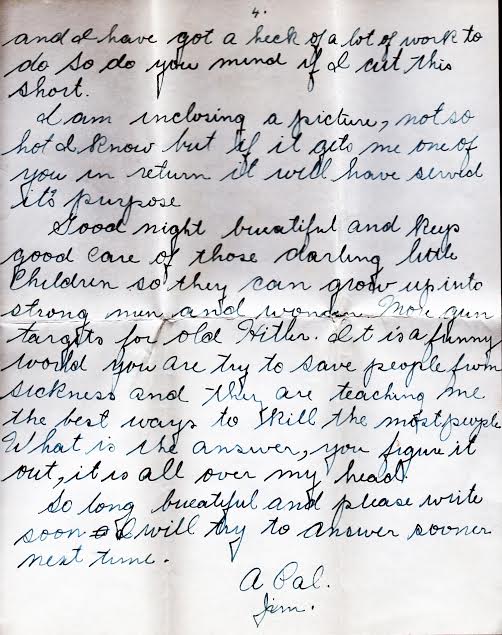 4.
and I have got a heck of a lot of work to
do so do you mind if I cut this
short.
I am inclosing a picture, not so
hot I know but if it gets me one of
you in return it will have served
it's purpose
Good night bueatiful and keep
good care of those darling little
children so they can grow up into
strong men and women More gun
targets for old Hitler. It is a funny
world you are try to save people from
sickness and they are teaching me
the best ways to kill the most people
What is the answer, you figure it
out, it is all over my head.
So long bueatiful and please write
soon I will try to answer sooner
next time.
A Pal.
Jim.